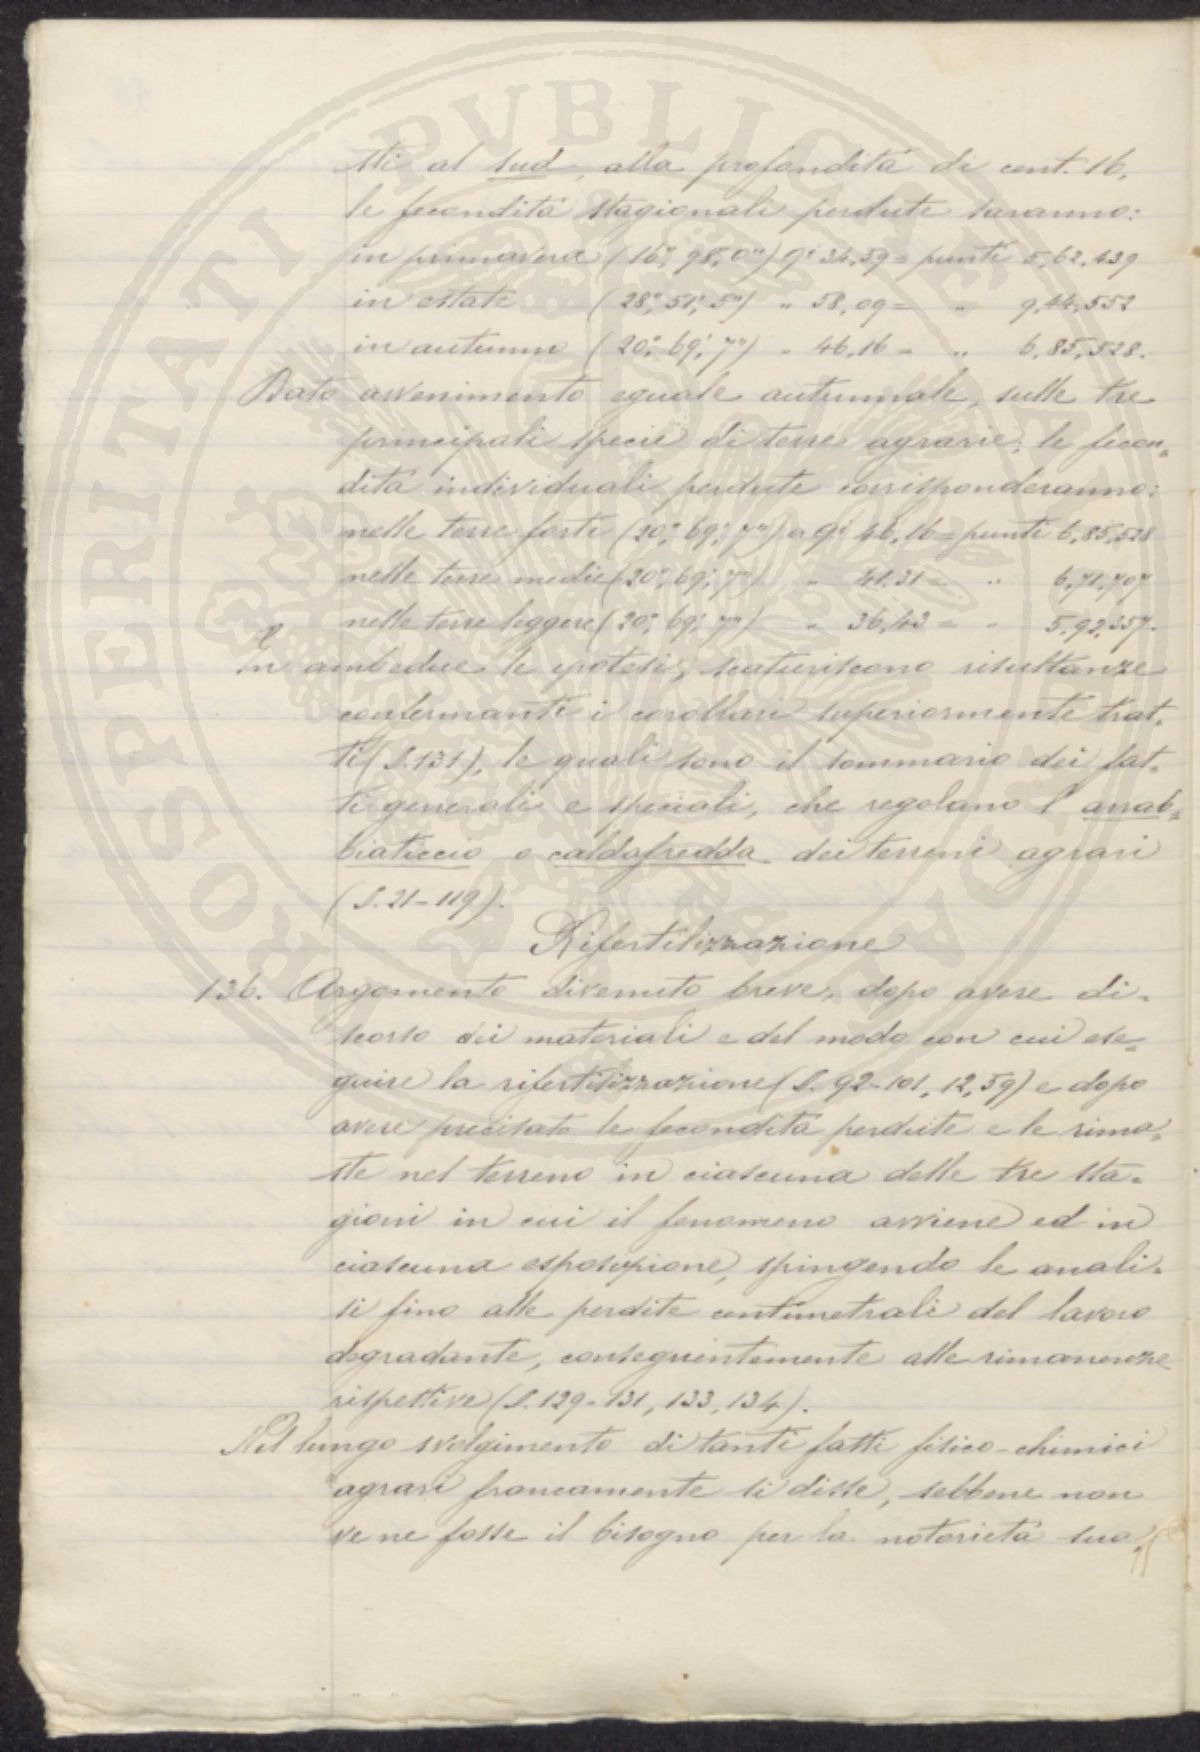 sti al sud, alla profondità di cent. 16,
le fecondità stagionali perdute saranno:
in primavera (16°, 98', 0") Qi 34,59 = punti 5,62,439
in estate (28°, 51', 5") " 58,09 = " 9,44,552
in autunno (20°, 69', 7") " 46,16 = " 6,85,528.
Dato avvenimento eguale autunnale, sulle tre
principali specie di terre agrarie, le fecon=
dità individuali perdute corrisponderanno:
nelle terre forti (20°, 69', 7") a Qi 46,16 = punti 6,85,528
nelle terre medie (20°, 69', 7") " 41,31 = " 6,71,707
nelle terre leggere (20°, 69', 7") " 36,43 = " 5,92,357.
In ambedue le ipotesi, scaturiscono risultanze
confermanti i corollari superiormente trat=
ti (§.131), le quali sono il sommario dei fat=
ti generali e speciali, che regolano l'arrab=
biaticcio o caldafredda dei terreni agrari
(§. 21-119).
Rifertilizzazione
136. Argomento divenuto breve, dopo avere di=
scorso dei materiali e del modo con cui ese=
guire la rifertilizzazione (§. 92-101, 12, 59) e dopo
avere precisato le fecondità perdute e le rima=
ste nel terreno in ciascuna delle tre sta=
gioni in cui il fenomeno avviene ed in
ciascuna esposizione, spingendo le anali=
si fino alle perdite centimetrali del lavoro
degradante, conseguentemente alle rimanenze
rispettive (§. 129-131, 133, 134).
Nel lungo svolgimento di tanti fatti fisico-chimici
agrari francamente si disse, sebbene non
ve ne fosse il bisogno per la notorietà sua,
PROSPERITATI PUBLICAE